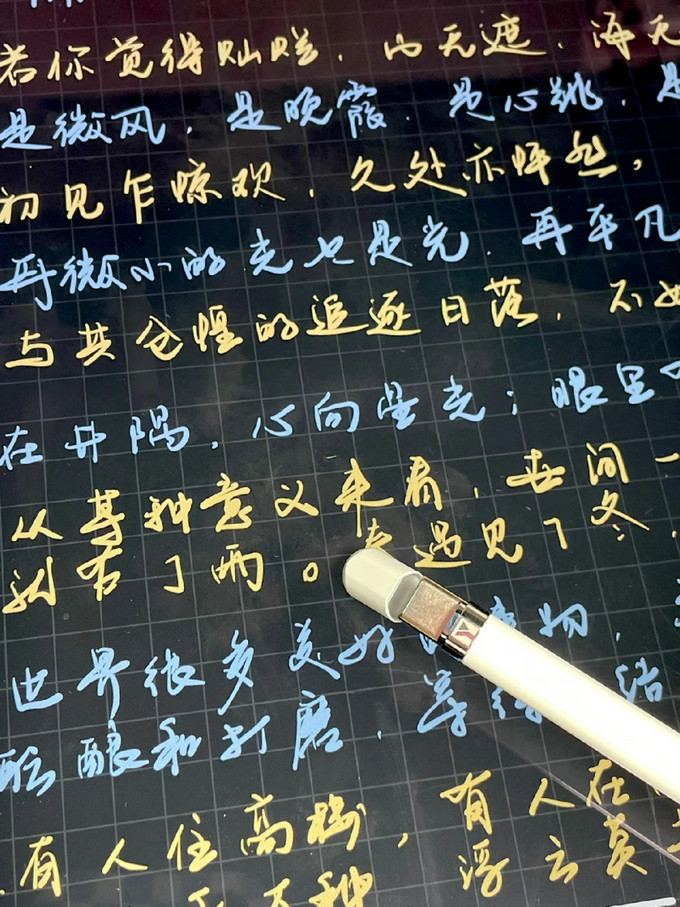 若你觉得灿烂，山无遮，海无
是微风，是晚霞，是心跳，是
初见乍惊欢，久处亦怦然。
再微小的光也是光，再平凡
与其仓惶的追逐日落，不如
在井隅，心向星光；眼里
从某种意义来看，世间一
就有了两。春遇见了冬，
世界很多美好 物，
酝酿和打磨，等待 给
有人住高楼，有人在
浮云英